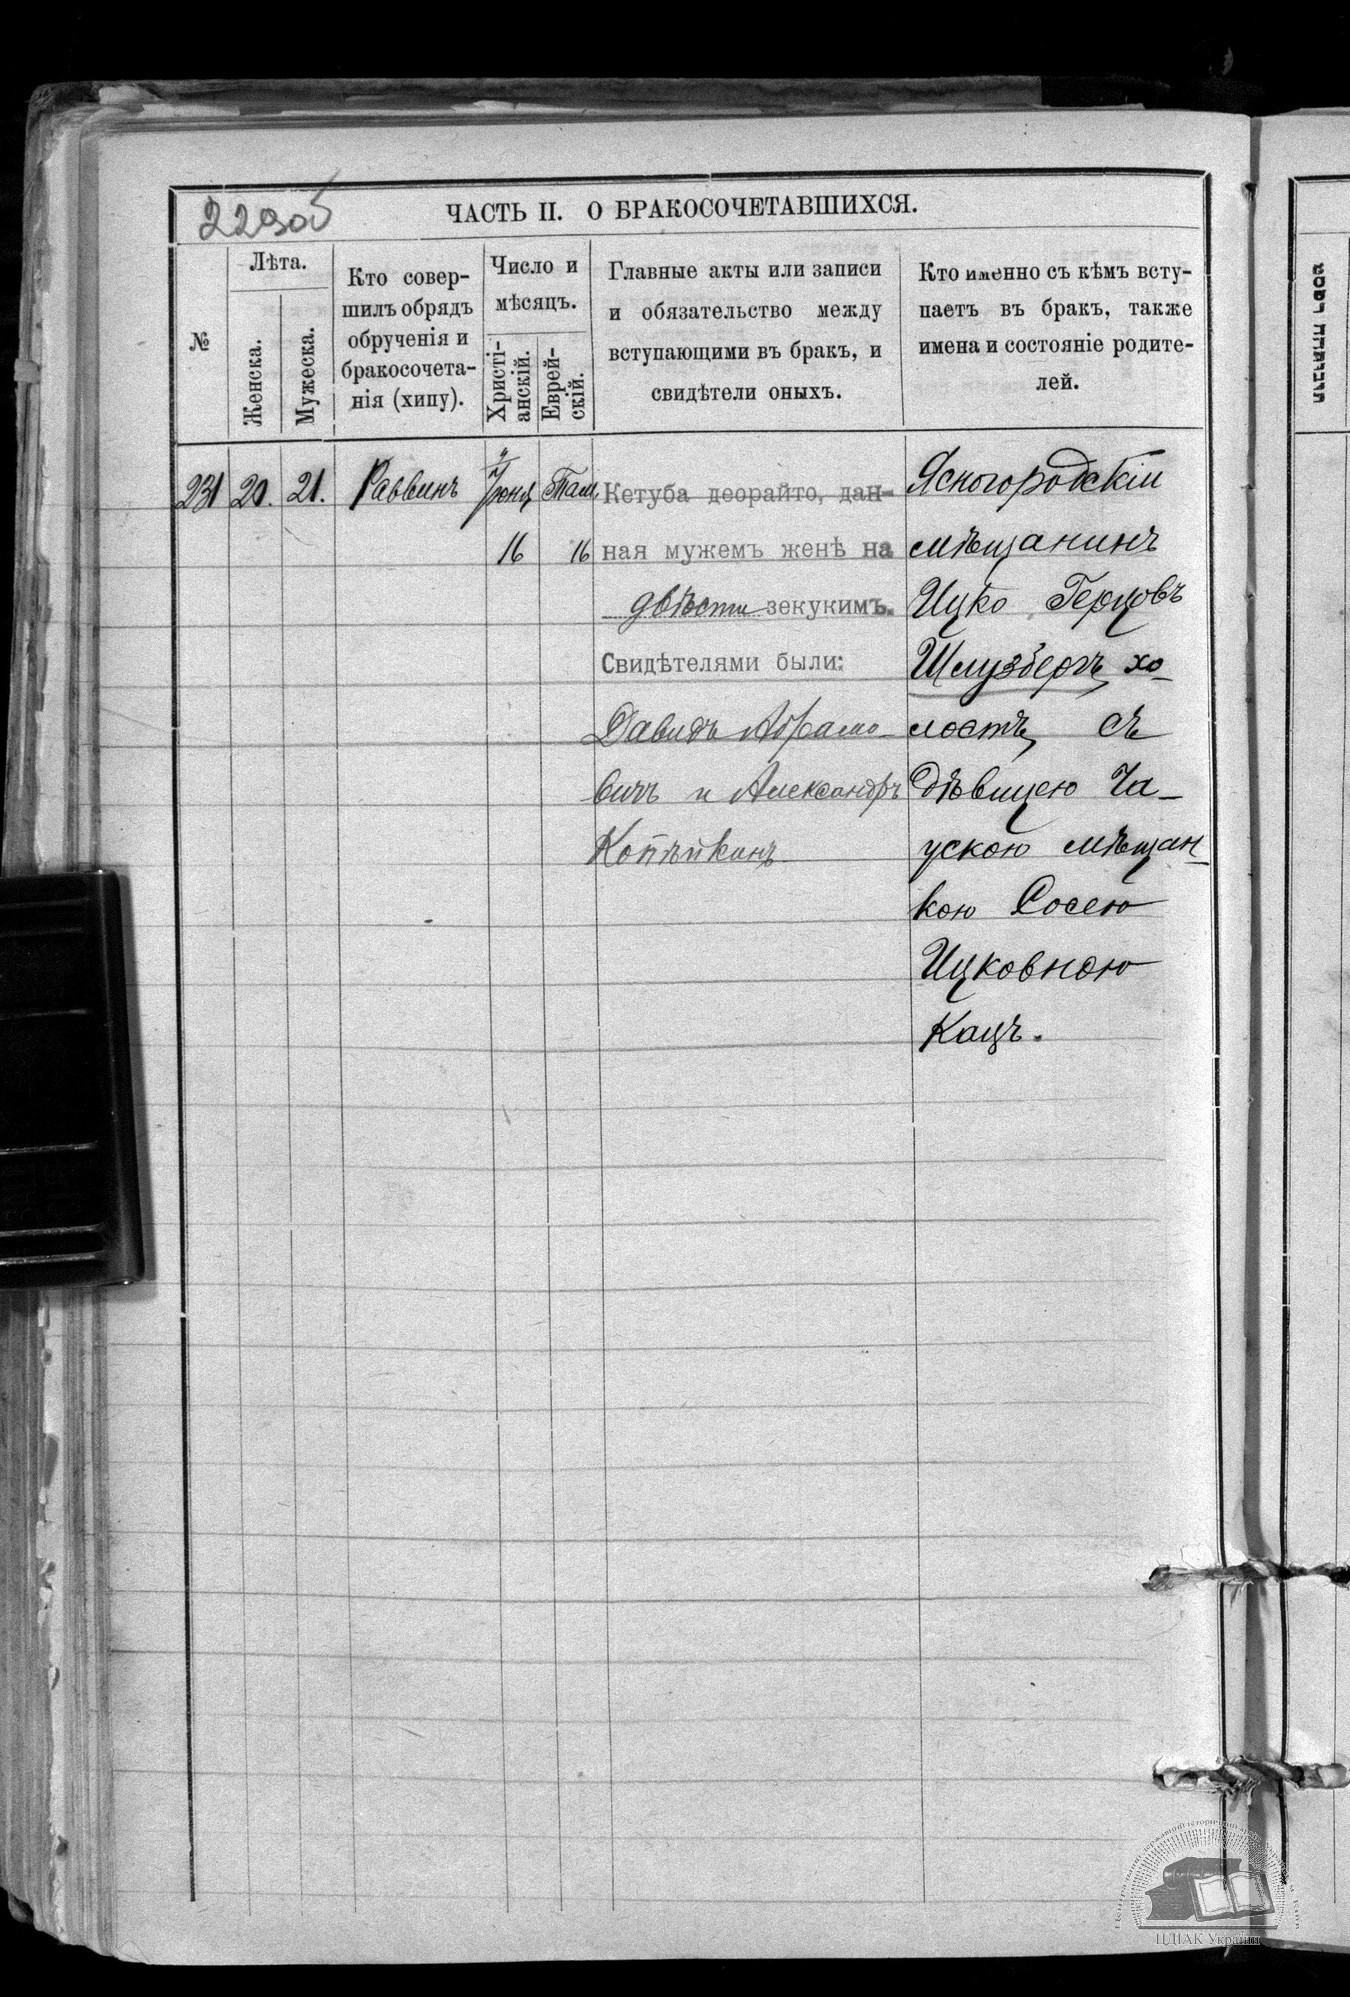 229об
ЧАСТЬ II. О БРАКОСОЧЕТАВШИХСЯ.
№
Лѣта.
Женска.
Мужеска.
Кто совер-
шилъ обрядъ
обрученія и
бракосочета-
нія (хипу).
Число и
мѣсяцъ.
Христі-
анскій.
Еврей-
скій.
Главные акты или записи
и обязательство между
вступающими въ бракъ, и
свидѣтели оныхъ.
Кто именно съ кѣмъ всту-
паетъ въ бракъ, также
имена и состояніе родите-
лей.
231 20. 21. Раввинъ Іюня Там.
16 16
Кетуба деорайто, дан-
ная мужемъ женѣ на
двѣсти зекукимъ.
Свидѣтелями были:
Давидъ Абрамо-
вичъ и Александръ
Копѣйкинъ
Ясногородскій
мѣщанинъ
Ицко Герцовъ
Шлузбергъ, хо-
лостъ, съ
дѣвицею Ча-
ускою мѣщан-
кою Сосею
Ицковною
Кацъ.
ЦДІАК України